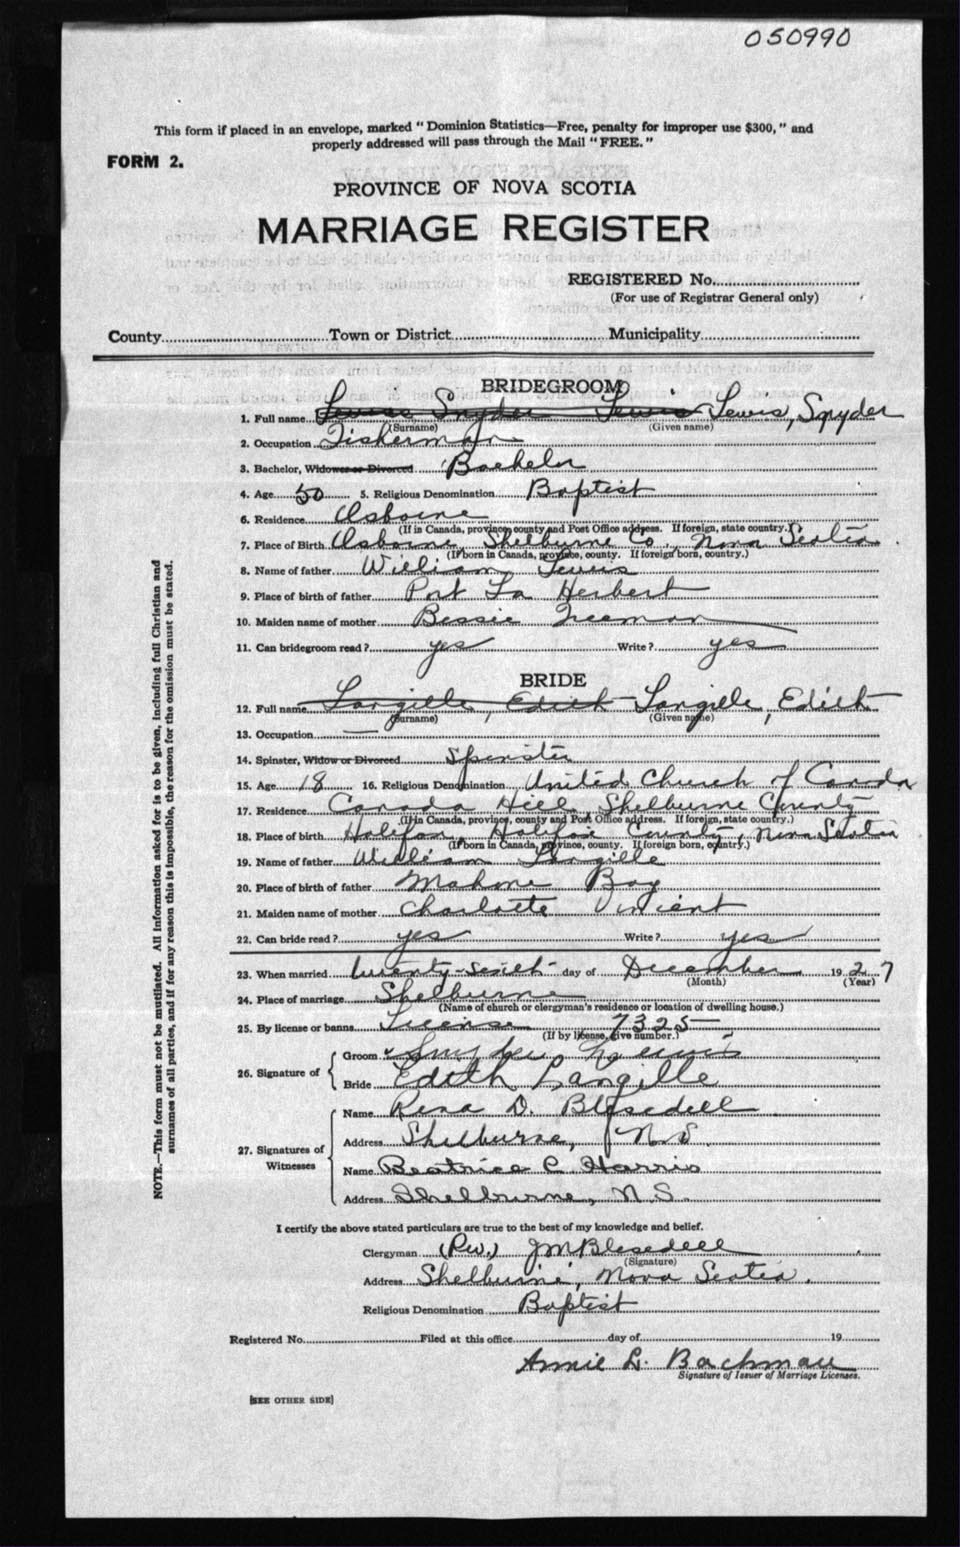 050990
This form if placed in an envelope, marked "Dominion Statistics—Free, penalty for improper use $300," and
properly addressed will pass through the Mail "FREE."
FORM 2.
PROVINCE OF NOVA SCOTIA
MARRIAGE REGISTER
REGISTERED No.
(For use of Registrar General only)
County Town or District Municipality
BRIDEGROOM
1. Full name Snyder Lewis Lewis, Snyder
(Surname) (Given name)
2. Occupation Fisherman
3. Bachelor, Widower or Divorced Bachelor
4. Age 50 5. Religious Denomination Baptist
6. Residence Osborne
(If in Canada, province, county and Post Office address. If foreign, state country.)
7. Place of Birth Osborne, Shelburne Co., Nova Scotia.
(If born in Canada, province, county. If foreign born, country.)
8. Name of father William Lewis
9. Place of birth of father Port La Herbert
10. Maiden name of mother Bessie Freeman
11. Can bridegroom read? yes Write? yes
BRIDE
12. Full name Langille, Edith Langille, Edith
(Surname) (Given name)
13. Occupation —
14. Spinster, Widow or Divorced Spinster
15. Age 18 16. Religious Denomination United Church of Canada
17. Residence Canada Hill Shelburne County
(If in Canada, province, county and Post Office address. If foreign, state country.)
18. Place of birth Halifax, Halifax County, Nova Scotia
(If born in Canada, province, county. If foreign born, country.)
19. Name of father William Langille
20. Place of birth of father Mahone Bay
21. Maiden name of mother Charlotte Vincent
22. Can bride read? yes Write? yes
23. When married twenty-sixth day of December 1927
(Month) (Year)
24. Place of marriage Shelburne
(Name of church or clergyman's residence or location of dwelling house.)
25. By license or banns License 7325
(If by license, give number.)
26. Signature of
Groom Snyder Lewis
Bride Edith Langille
27. Signatures of Witnesses
Name Rena D. Blesedell
Address Shelburne, N.S.
Name Beatrice C. Harris
Address Shelburne, N.S.
I certify the above stated particulars are true to the best of my knowledge and belief.
Clergyman (Rev.) J M Blesedell
(Signature)
Address Shelburne, Nova Scotia.
Religious Denomination Baptist
Registered No. Filed at this office day of 19
Annie L. Bachman
Signature of Issuer of Marriage Licenses.
[SEE OTHER SIDE]
NOTE.—This form must not be mutilated. All information asked for is to be given, including full Christian and
surnames of all parties, and if for any reason this is impossible, the reason for the omission must be stated.